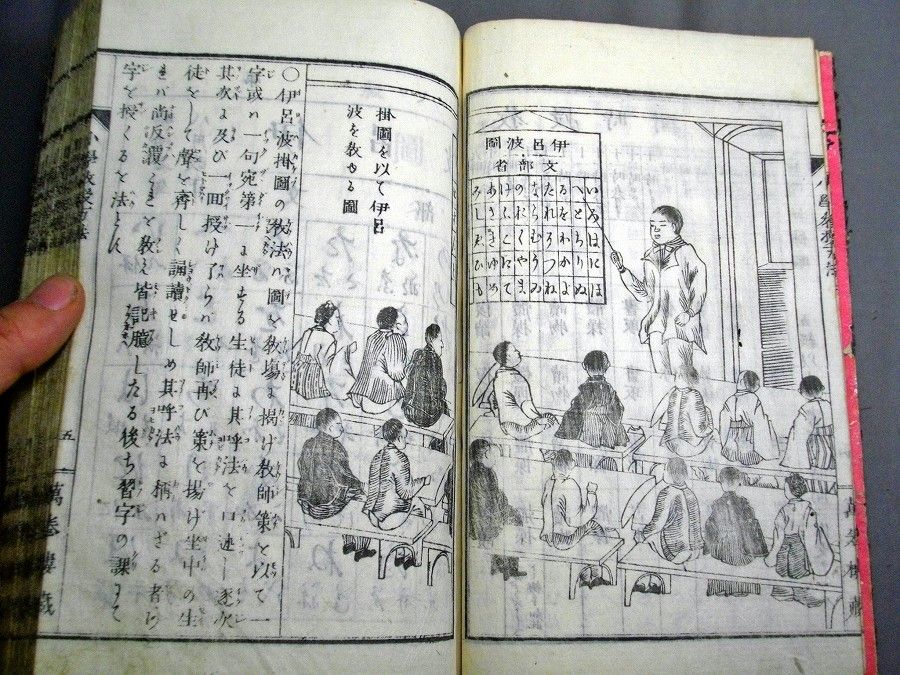 伊呂波圖
文部省
いろはにほ
へとちりぬ
るをわかよ
たれそつね
ならむうゐ
のおくやま
けふこえて
あさきゆめ
みしゑひも
掛圖を以て伊呂
波を教ゆる圖
〇伊呂波掛圖の教法ハ圖を教場に掲け教師策を以て一
字或ハ一句宛第一に坐する生徒に其呼法を口述し逐次
其次に及び一回授け了らバ教師再び策を揚け坐中の生
徒をして聲を齊しく誦讀せしめ其呼法に柄ハざる者
バ尚反覆これを教え皆記臆したる後ち習字の課にて
字を授くるを法とす
五